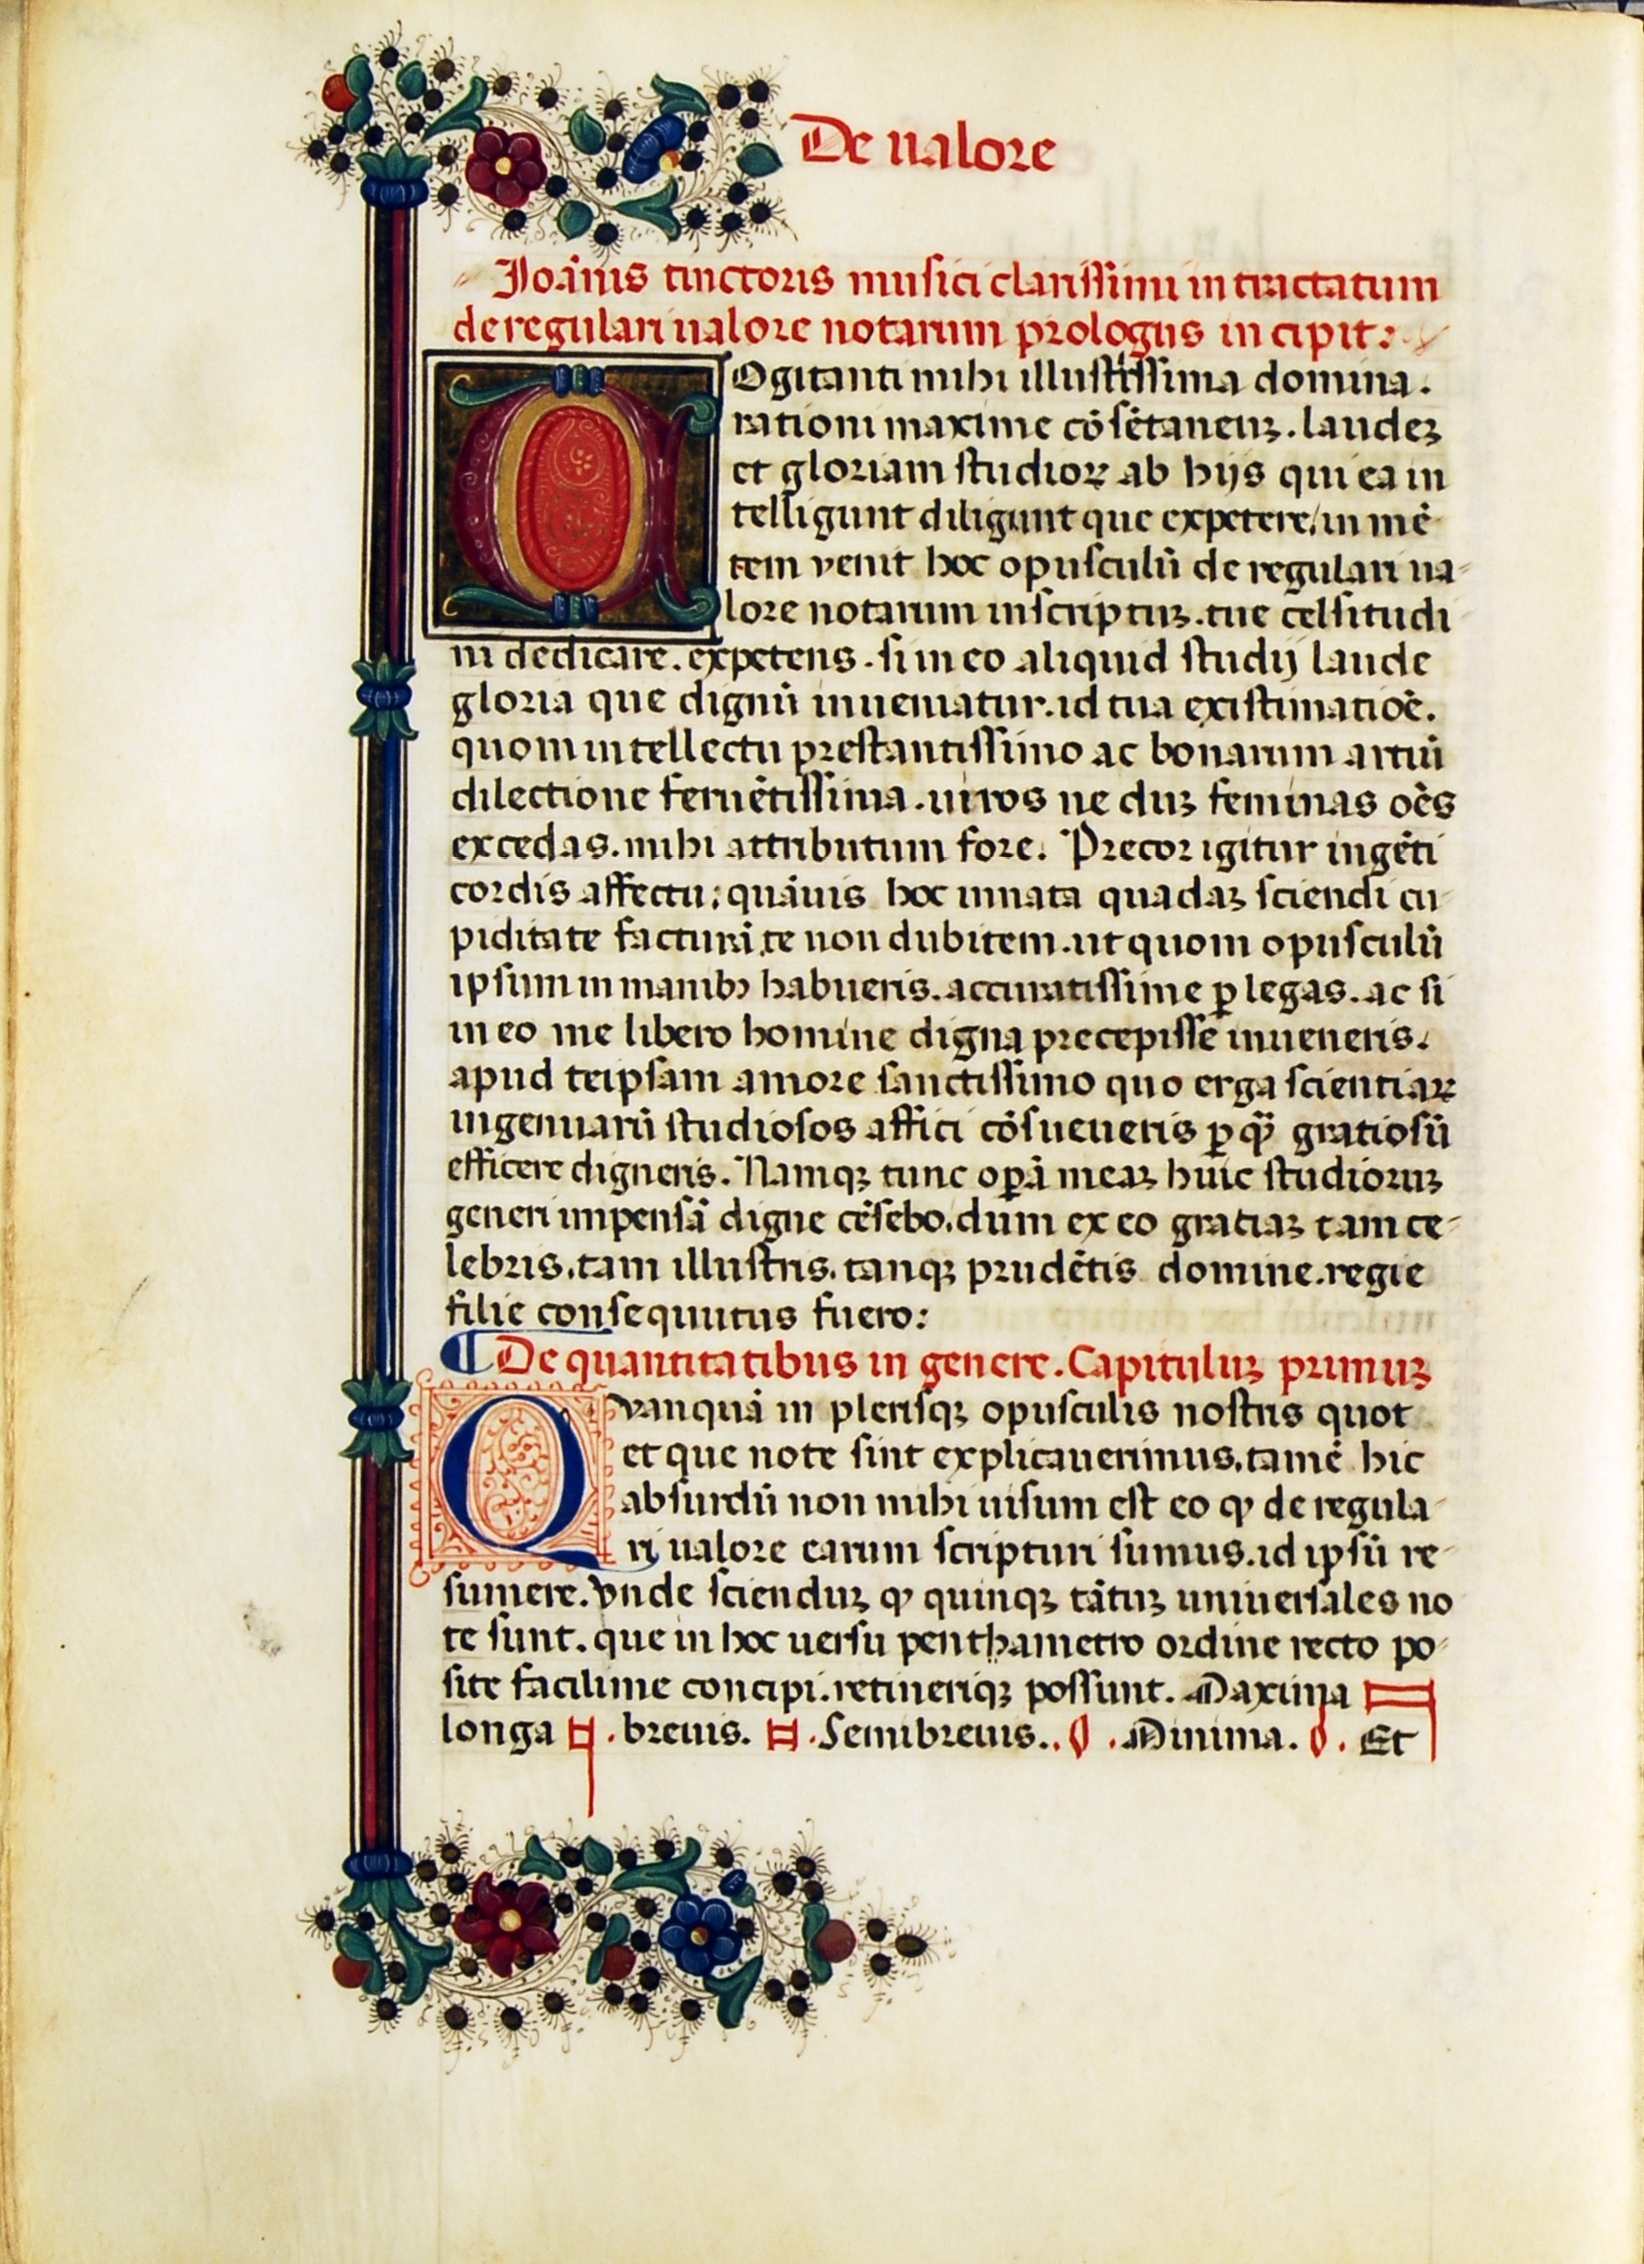 De ualore
Ioãnis tinctoris musici clarissimi in tractatum
de regulari ualore notarum prologus incipit:
COgitanti mihi illustrissima domina.
rationi maxime cõsẽtaneuꝫ. laudeꝫ
et gloriam studioꝝ ab hijs qui ea in
telligunt diligunt que expetere, in mẽ
tem venit hoc opusculũ de regulari ua-
lore notarum inscriptuꝫ. tue celsitudi
ni dedicare. expetens. si in eo aliquid studij laude
gloria que dignũ inueniatur. id tua existimatiõe.
quom intellectu prestantissimo ac bonarum artiũ
dilectione feruẽtissima. uiros ne duꝫ feminas oẽs
excedas. mihi attributum fore. Precor igitur ingẽti
cordis affectu: quãuis hoc innata quadaꝫ sciendi cu
piditate facturã te non dubitem. ut quom opusculũ
ipsum in manibꝫ habueris. accuratissime ꝑ legas. ac si
in eo me libero homine digna precepisse inueneris.
apud teipsam amore sanctissimo quo erga scientiaꝝ
ingenuarũ studiosos affici cõsueueris ꝑ qꝫ̃ gratiosũ
efficere digneris. Namqꝫ tunc oꝑã meaꝫ huic studioruꝫ
generi impensã digne cẽsebo. dum ex eo gratiaꝫ tam ce-
lebris. tam illustris. tanqꝫ prudẽtis domine. regie
filie consequutus fuero:
¶ De quantitatibus in genere. Capituluꝫ primuꝫ
Qvanquã in plerisqꝫ opusculis nostris quot
et que note sint explicauerimus. tamẽ hic
absurdũ non mihi uisum est eo ꝙ de regula-
ri ualore earum scripturi sumus. id ipsũ re-
sumere. Vnde scienduꝫ ꝙ quinqꝫ tãtuꝫ uniuersales no
te sunt. que in hoc uersu penthametro ordine recto po-
site facilime concipi. retinerique possunt. Maxima
longa . breuis. . Semibreuis.. . Minima. . Et